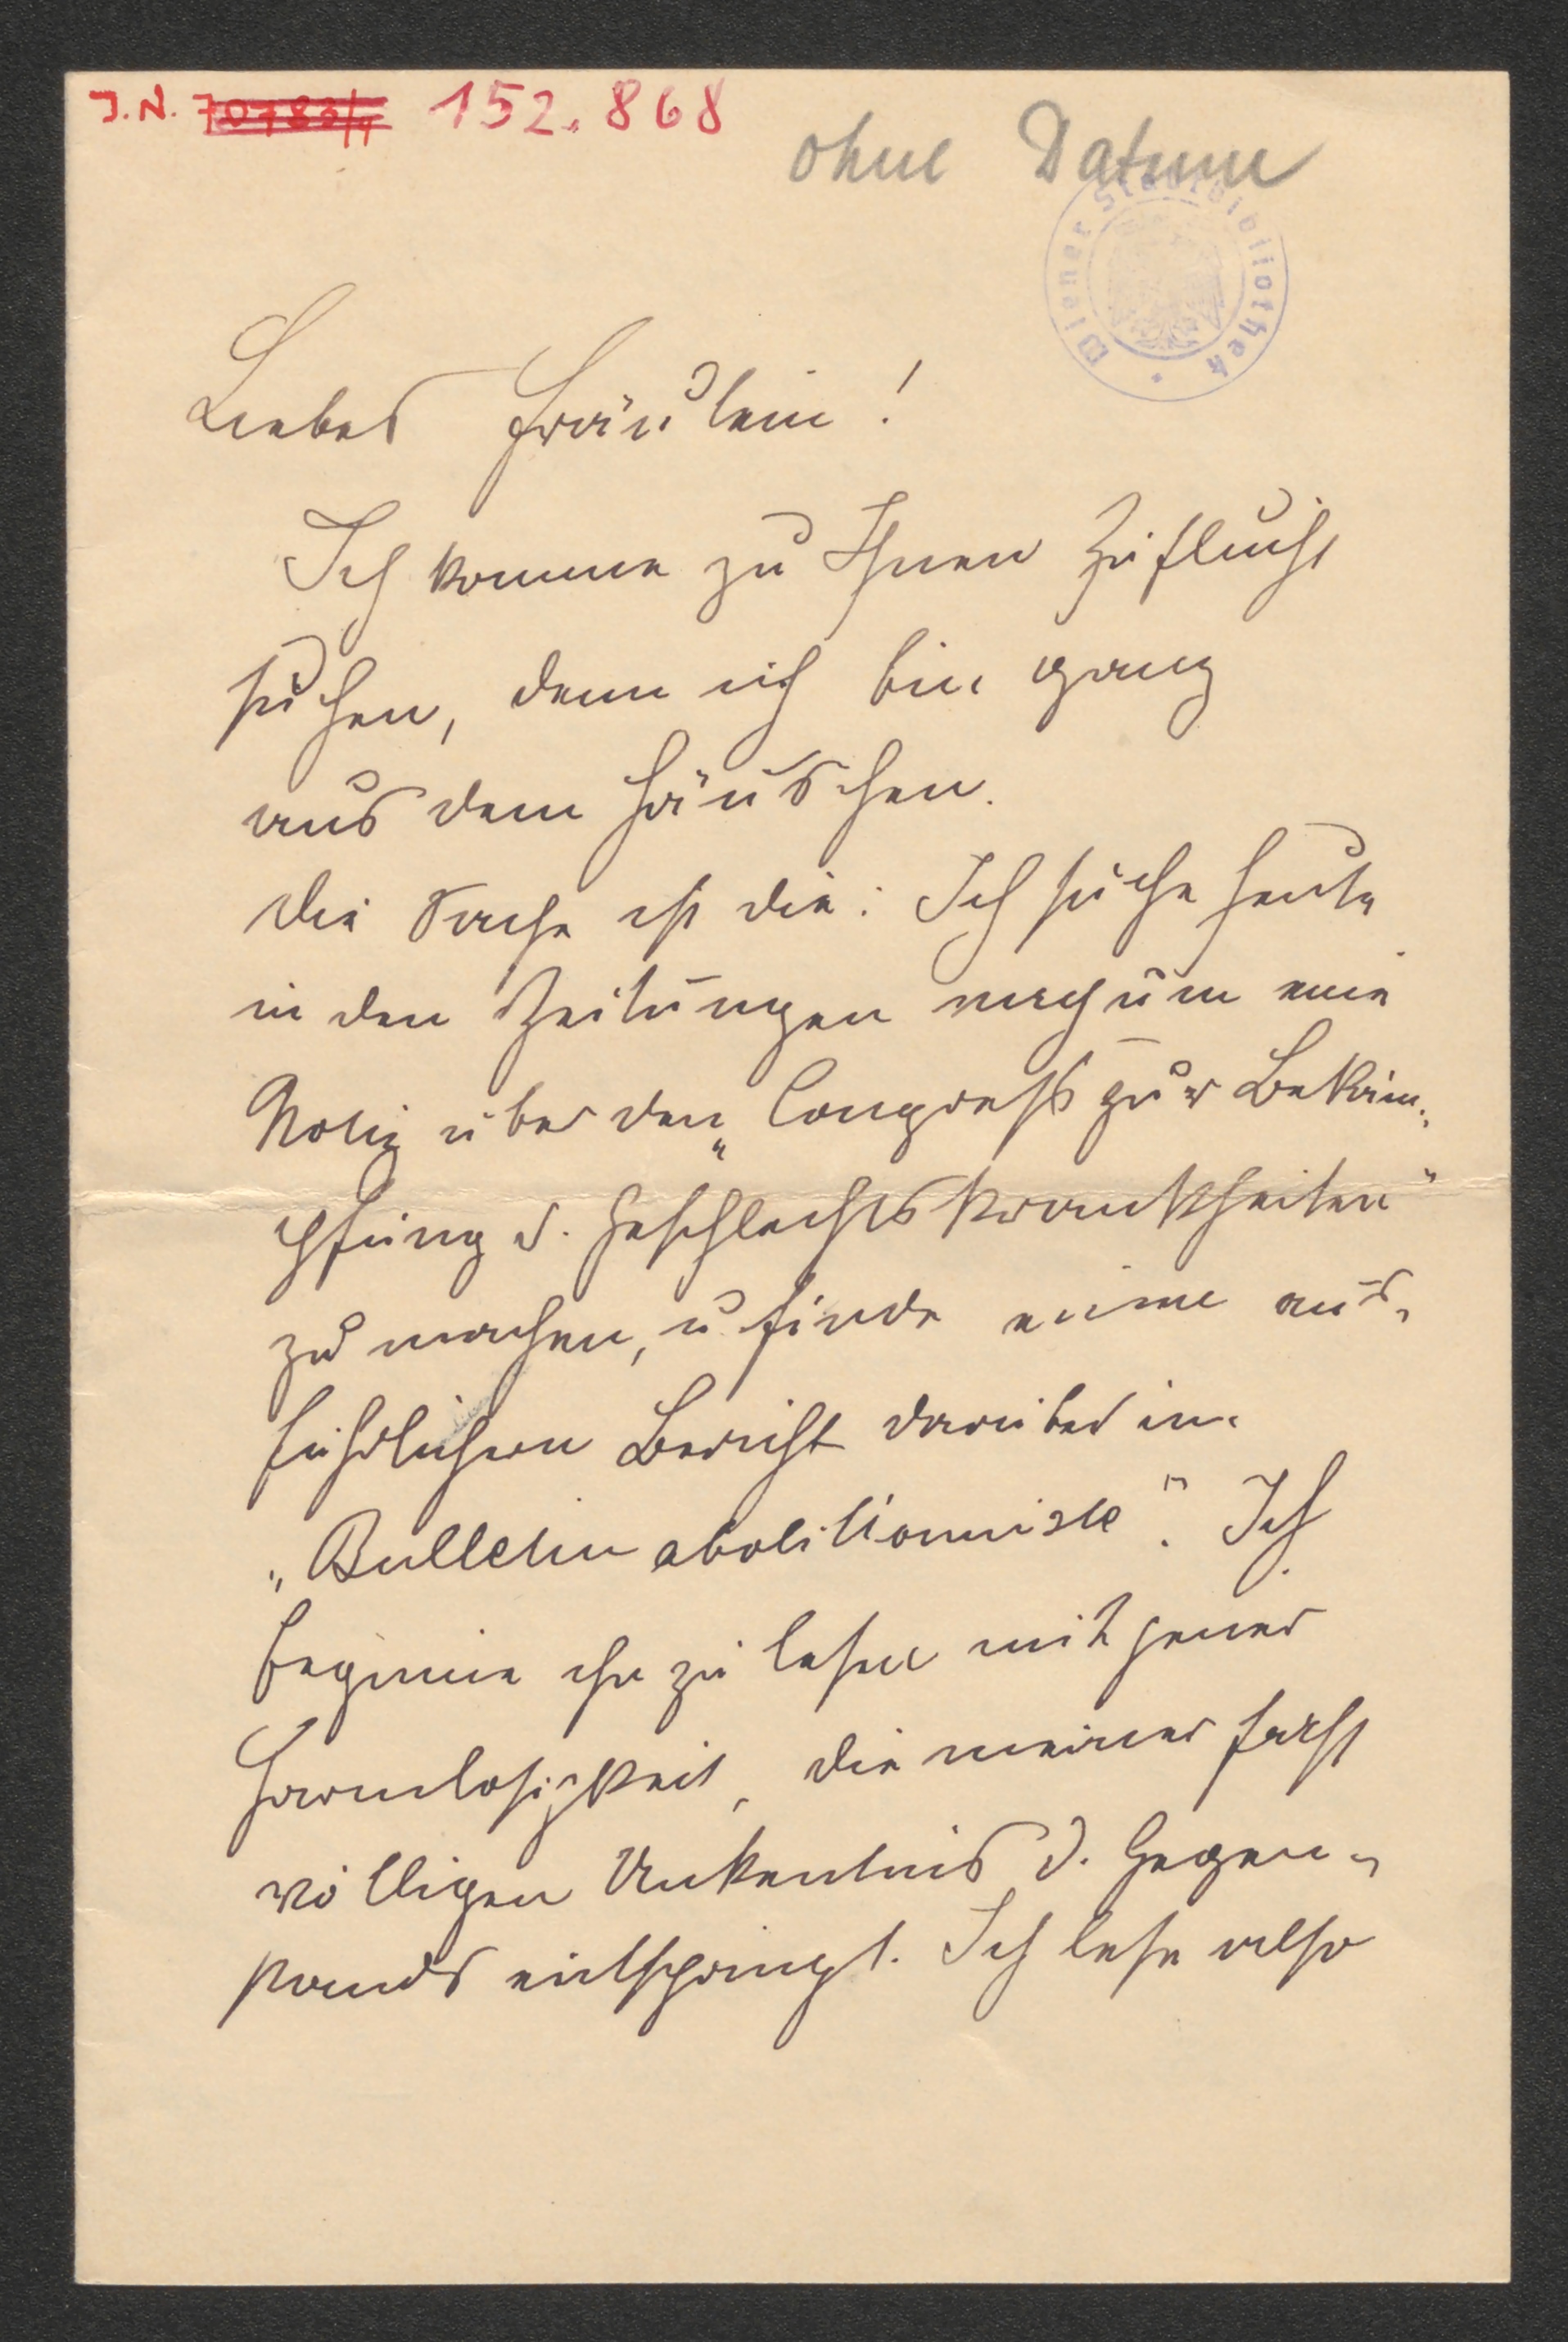 J.N. 70783/1 152.868
ohne Datum
Wiener Stadtbibliothek
Liebes Fräulein!
Ich komme zu Ihnen Zuflucht
suchen, denn ich bin ganz
aus dem Häuschen.
Die Sache ist die: Ich suche heute
in den Zeitungen nach um eine
Notiz über den „Congress zur Bekäm-
pfung d. Geschlechtskrankheiten"
zu machen, u. finde einen aus-
führlichern Bericht darüber im
„Bulletin abolitionniste". Ich
beginne ihn zu lesen mit jener
Harmlosigkeit, die meiner fast
völligen Unkentnis d. Gegen-
stands entspringt. Ich lese also